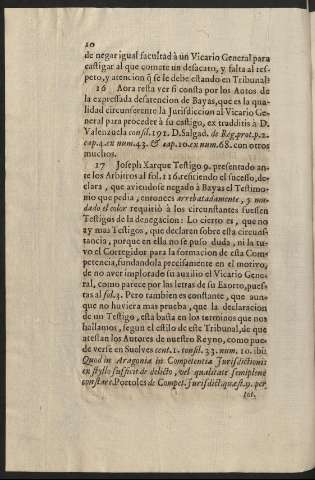 10
de negar igual facultad à un Vicario General para
castigar al que comete un desacato, y falta al res-
peto, y atencion q̃ se le debe estando en Tribunal?
16 Aora resta ver si consta por los Autos de
la expressada desatencion de Bayas, que es la qua-
lidad circunferente la Jurisdiccion al Vicario Ge-
neral para proceder à su castigo, ex traditis à D.
Valenzuela consil. 191. D. Salgad. de Reg. prot. p. 2.
cap. 4. ex num. 43. & cap. 10. ex num. 68. con otros
muchos.
17 Joseph Xarque Testigo 9. presentado an-
te los Arbitros al fol. 116. resciendo el sucesso, de-
clara, que aviendose negado à Bayas el Testimo-
nio que pedia, entonces arrebatadamente, y mu-
dado el color requiriò à los circunstantes fuessen
Testigos de la denegacion: Lo cierto es, que no
ay mas Testigos, que declaren sobre esta circuns-
tancia, porque en ella no se puso duda, ni la tu-
vo el Corregidor para la formacion de esta Com-
petencia, fundandola precissamente en el motivo,
de no aver implorado su auxilio el Vicario Gene-
ral, como parece por las letras de su Exorto, pues-
tas al fol. 4. Pero tambien es constante, que aun-
que no huviera mas prueba, que la declaracion
de un Testigo, esta basta en los terminos que nos
hallamos, segun el estilo de este Tribunal, de que
atestan los Autores de nuestro Reyno, como pue-
de verse en Suelves cent. 1. consil. 33. num. 10. ibi:
Quod in Aragonia in Competentia Jurisdictionis
ex styllo sufficit de delicto, vel qualitate semiplenè
constare. Portoles de Compet. Jurisdict. quæst. 9. per
tot.